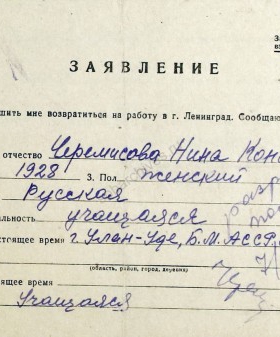 За
вх
ЗАЯВЛЕНИЕ
шить мне возвратиться на работу в г. Ленинград. Сообщаю
отчество Черемисова Нина Конс
1928 3. Пол женский
Русская
альность учащаяся
стоящее время г. Улан-Удэ, Б.М.АССР
(область, район, город, деревня)
ящее время
Учащаяся